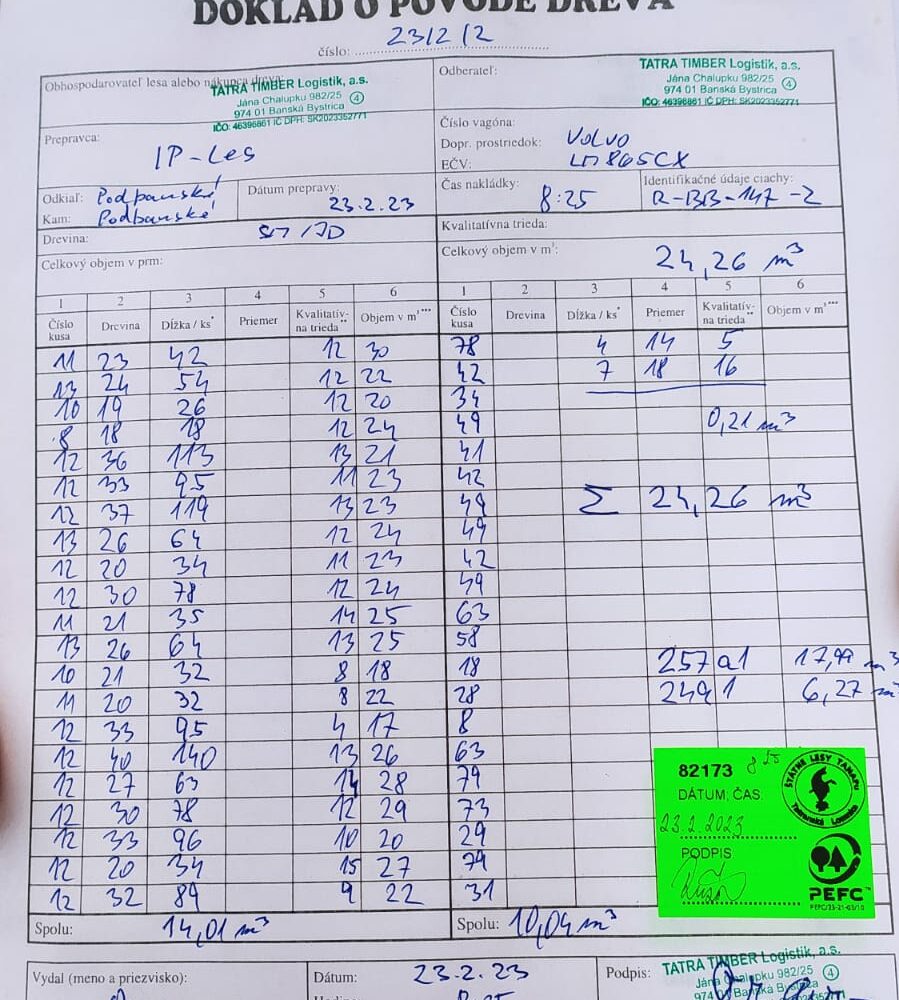 DOKLAD O PÔVODE DREVA
číslo: 23/2/2
Obhospodarovateľ lesa alebo nákupca dreva:
TATRA TIMBER Logistik, a.s.
Jána Chalupku 982/25
974 01 Banská Bystrica
4
IČO: 46396861 IČ DPH: SK2023352771
Odberateľ:
TATRA TIMBER Logistik, a.s.
Jána Chalupku 982/25
974 01 Banská Bystrica
4
IČO: 46396861 IČ DPH: SK2023352771
Prepravca:
IP-Les
Číslo vagóna:
Dopr. prostriedok: VOLVO
EČV: LM865CX
Odkiaľ: Podbanské
Kam: Podbanské
Dátum prepravy:
23.2.23
Čas nakládky:
8:25
Identifikačné údaje ciachy:
R-BB-147-2
Drevina: SM/JD
Kvalitatívna trieda:
Celkový objem v prm:
Celkový objem v m³:
24,26 m³
1 2 3 4 5 6 1 2 3 4 5 6
Číslo kusa Drevina Dĺžka / ks* Priemer Kvalitatív-na trieda** Objem v m³*** Číslo kusa Drevina Dĺžka / ks* Priemer Kvalitatív-na trieda** Objem v m³***
11 23 42 12 30 78 4 14 5
13 24 54 12 22 42 7 18 16
10 19 26 12 20 34
8 18 18 12 24 49 0,21 m³
12 36 113 13 21 41
12 33 95 11 23 42
12 37 119 13 23 49 Σ 24,26 m³
13 26 64 12 24 49
12 20 34 11 23 42
12 30 78 12 24 49
11 21 35 14 25 63
13 26 64 13 25 58
10 21 32 8 18 18 257a1 17,99 m³
11 20 32 8 22 28 249 1 6,27 m³
12 33 95 4 17 8
12 40 140 13 26 63
12 27 63 14 28 79
12 30 78 12 29 73
12 33 96 10 20 29
12 20 34 15 27 79
12 32 89 9 22 31
82173
8 25
DÁTUM, ČAS
23.2.2023
PODPIS
ŠTÁTNE LESY TANAPU
Tatranská Lomnica
PEFC™
PEFC/23-21-03/10
Spolu: 14,01 m³
Spolu: 10,04 m³
Vydal (meno a priezvisko):
Dátum: 23.2.23
Hodina: 8:25
Podpis:
TATRA TIMBER Logistik, a.s.
Jána Chalupku 982/25
4
974 01 Banská Bystrica